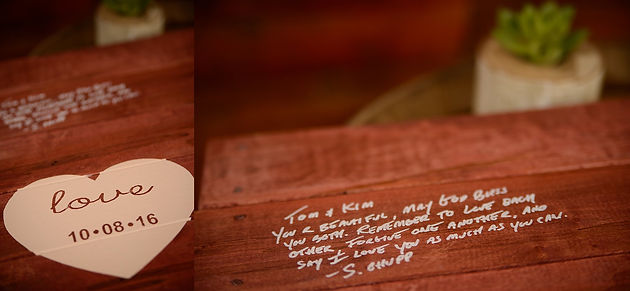 love
10•08•16
Tom & Kim
You R Beautiful, May God Bless
you both. Remember to love each
other. Forgive one another. And
say I love you as much as you can.
-S. Chupp